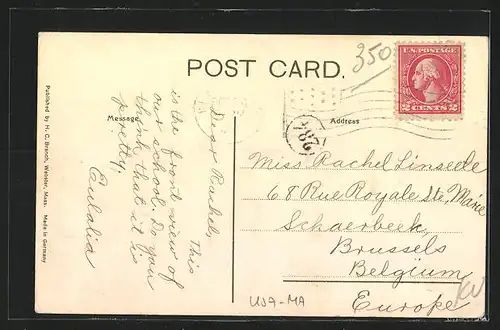 POST CARD.
350
U.S. POSTAGE
2 CENTS 2
Message
Address
Dear Rachel,
This
is the front view of
our school. Do you
think that it is
pretty,
Eulalia
Miss Rachel Linseele
68 Rue Royale Ste, Marie
Schaerbeek,
Brussels
Belgium,
Europe
Published by H. C. Branch, Webster, Mass. Made in Germany
USA-MA